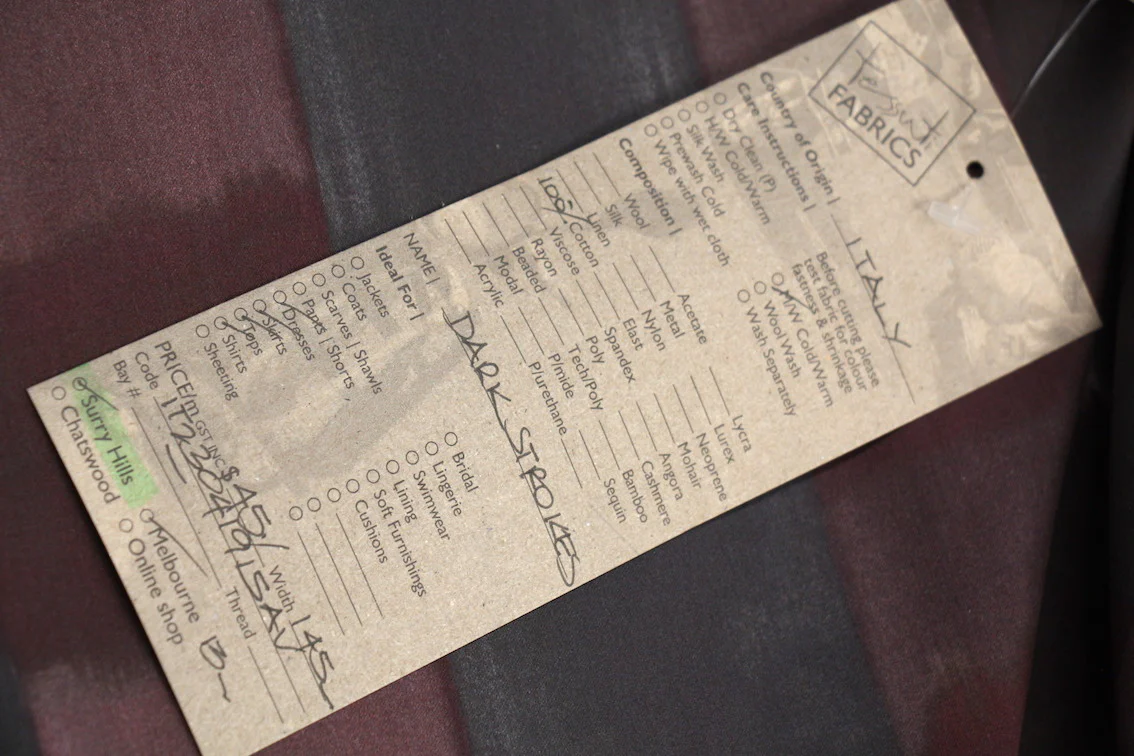 Tessuti
FABRICS
Country of Origin | ITALY
Care Instructions | Before cutting please
test fabric for colour
fastness & shrinkage
Dry Clean (P)
H/W Cold/Warm
Silk Wash
Prewash Cold
Wipe with wet cloth
M/W Cold/Warm
Wool Wash
Wash Separately
Composition |
Wool
Silk
Linen
100% Cotton
Viscose
Rayon
Beaded
Modal
Acrylic
Acetate
Metal
Nylon
Elast
Spandex
Poly
Tech/Poly
P/mide
P/urethane
Lycra
Lurex
Neoprene
Mohair
Angora
Cashmere
Bamboo
Sequin
NAME | DARK STROKES
Ideal For |
Jackets
Coats
Scarves | Shawls
Pants | Shorts
Dresses
Skirts
Tops
Shirts
Sheeting
Bridal
Lingerie
Swimwear
Lining
Soft Furnishings
Cushions
PRICE/m GST INC $ 45/ Width 145
Code Thread
Bay #
Surry Hills Melbourne
Chatswood Online shop